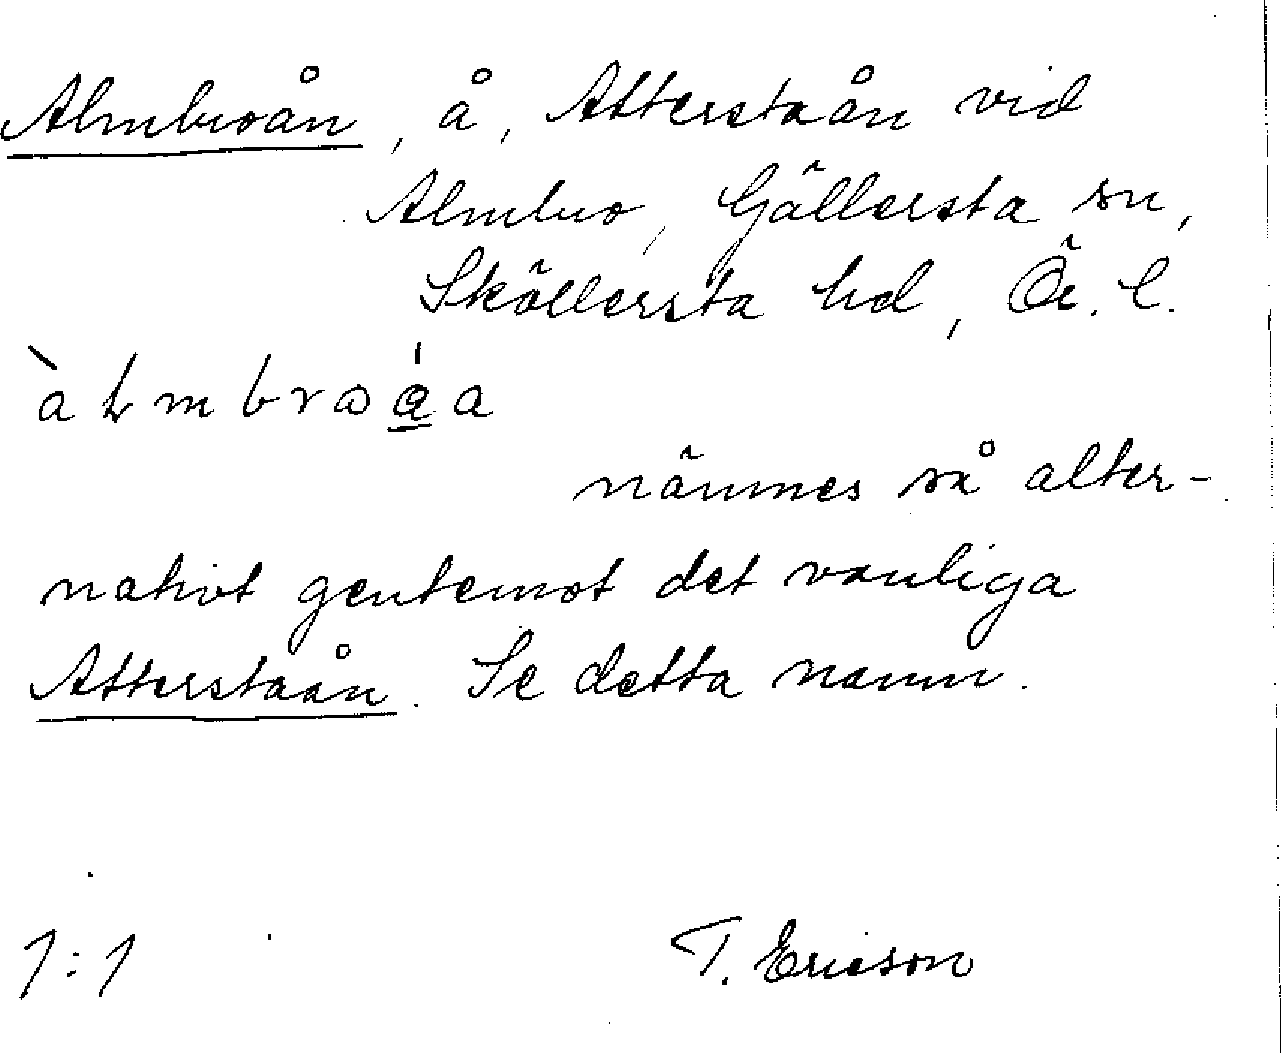 Almbroån, å, Atterstaån vid
Almbro, Gällersta sn,
Sköllersta hd, Ör. l.
àlmbroáa
nämnes så alter-
nativt gentemot det vanliga
Atterstaån. Se detta namn.
1:1 T. Ericson